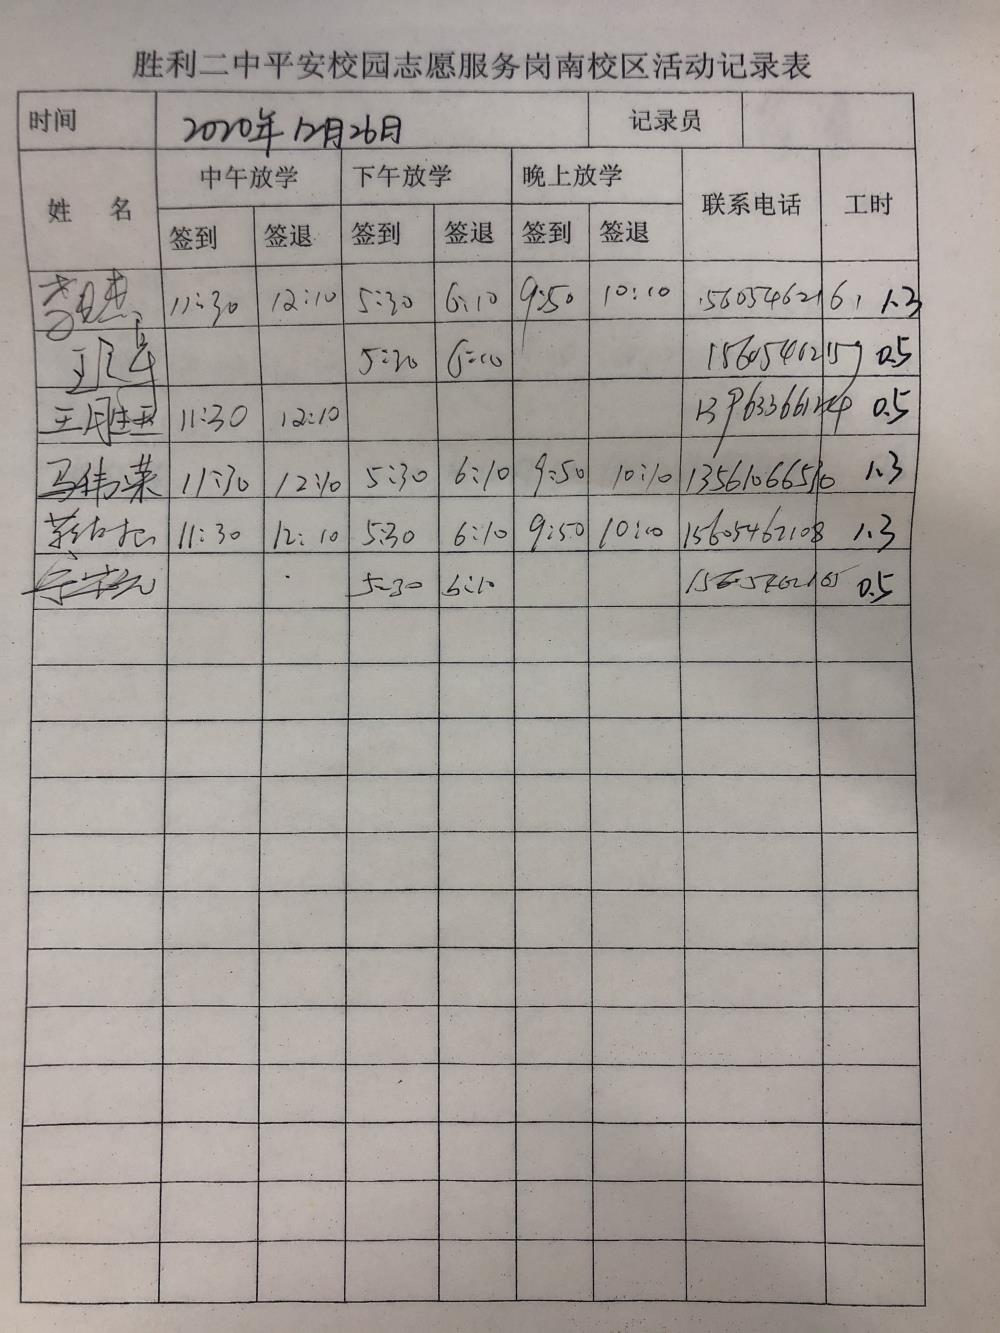 胜利二中平安校园志愿服务岗南校区活动记录表
时间 2020年12月26日 记录员
姓 名 中午放学 下午放学 晚上放学 联系电话 工时
签到 签退 签到 签退 签到 签退
11:30 12:10 5:30 6:10 9:50 10:10 1.3
5:30 6:10 0.5
11:30 12:10 0.5
马伟荣 11:30 12:10 5:30 6:10 9:50 10:10 13561066510 1.3
11:30 12:10 5:30 6:10 9:50 10:10 15605462108 1.3
5:30 6:10 0.5